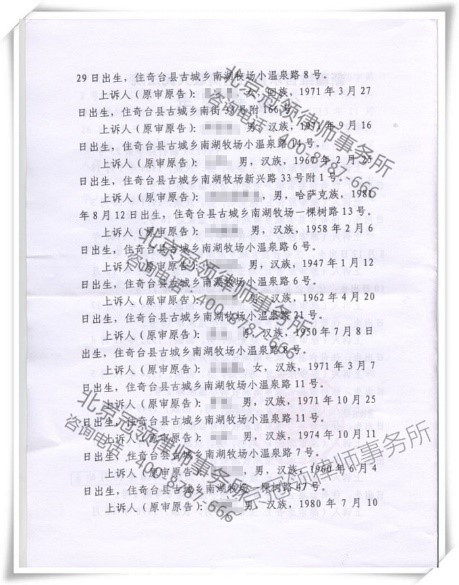 29日出生，住奇台县古城乡南湖牧场小温泉路8号。
上诉人（原审原告）：族，1971年3月27
日出生，住奇台县古城乡南街附166号。
上诉人（原审原告）：男，汉族，1971年9月16
日出生，住奇台县古城乡南湖牧场小温泉路11号。
上诉人（原审原告）：男，汉族，1960年2月
日出生，住奇台县古城乡南湖牧场新兴路33号附1号。
上诉人（原审原告）：，男，哈萨克族，1981
年8月12日出生，住奇台县古城乡南湖牧场一棵树路13号。
上诉人（原审原告）：男，汉族，1958年2月6
日出生，住奇台县古城乡南湖牧场小温泉路6号。
上诉人（原审原告）：男，汉族，1947年1月12
日出生，住奇台县古城乡南湖牧场小温泉路6号。
上诉人（原审原告）：男，汉族，1962年4月20
日出生，住奇台县古城乡南湖牧场小温泉路21号。
上诉人（原审原告）：男，汉族，1950年7月8日
出生，住奇台县古城乡南湖牧场小温泉路8号。
上诉人（原审原告）：女，汉族，1971年3月7
日出生，住奇台县古城乡南湖牧场小温泉路11号。
上诉人（原审原告）：男，汉族，1971年10月25
日出生，住奇台县古城乡南湖牧场小温泉路11号。
上诉人（原审原告）：男，汉族，1974年10月11
日出生，住奇台县古城乡南湖牧场小温泉路7号。
上诉人（原审原告）：，男，汉族，1960年6月4
日出生，住奇台县古城乡南湖牧场一棵树路47号。
上诉人（原审原告）：男，汉族，1980年7月10
北京冠领律师事务所
咨询电话：400-8787-666
北京冠领律师事务所
咨询电话：400-8787-666
北京冠领律师事务所
咨询电话：400-8787-666
北京冠领律师事务所